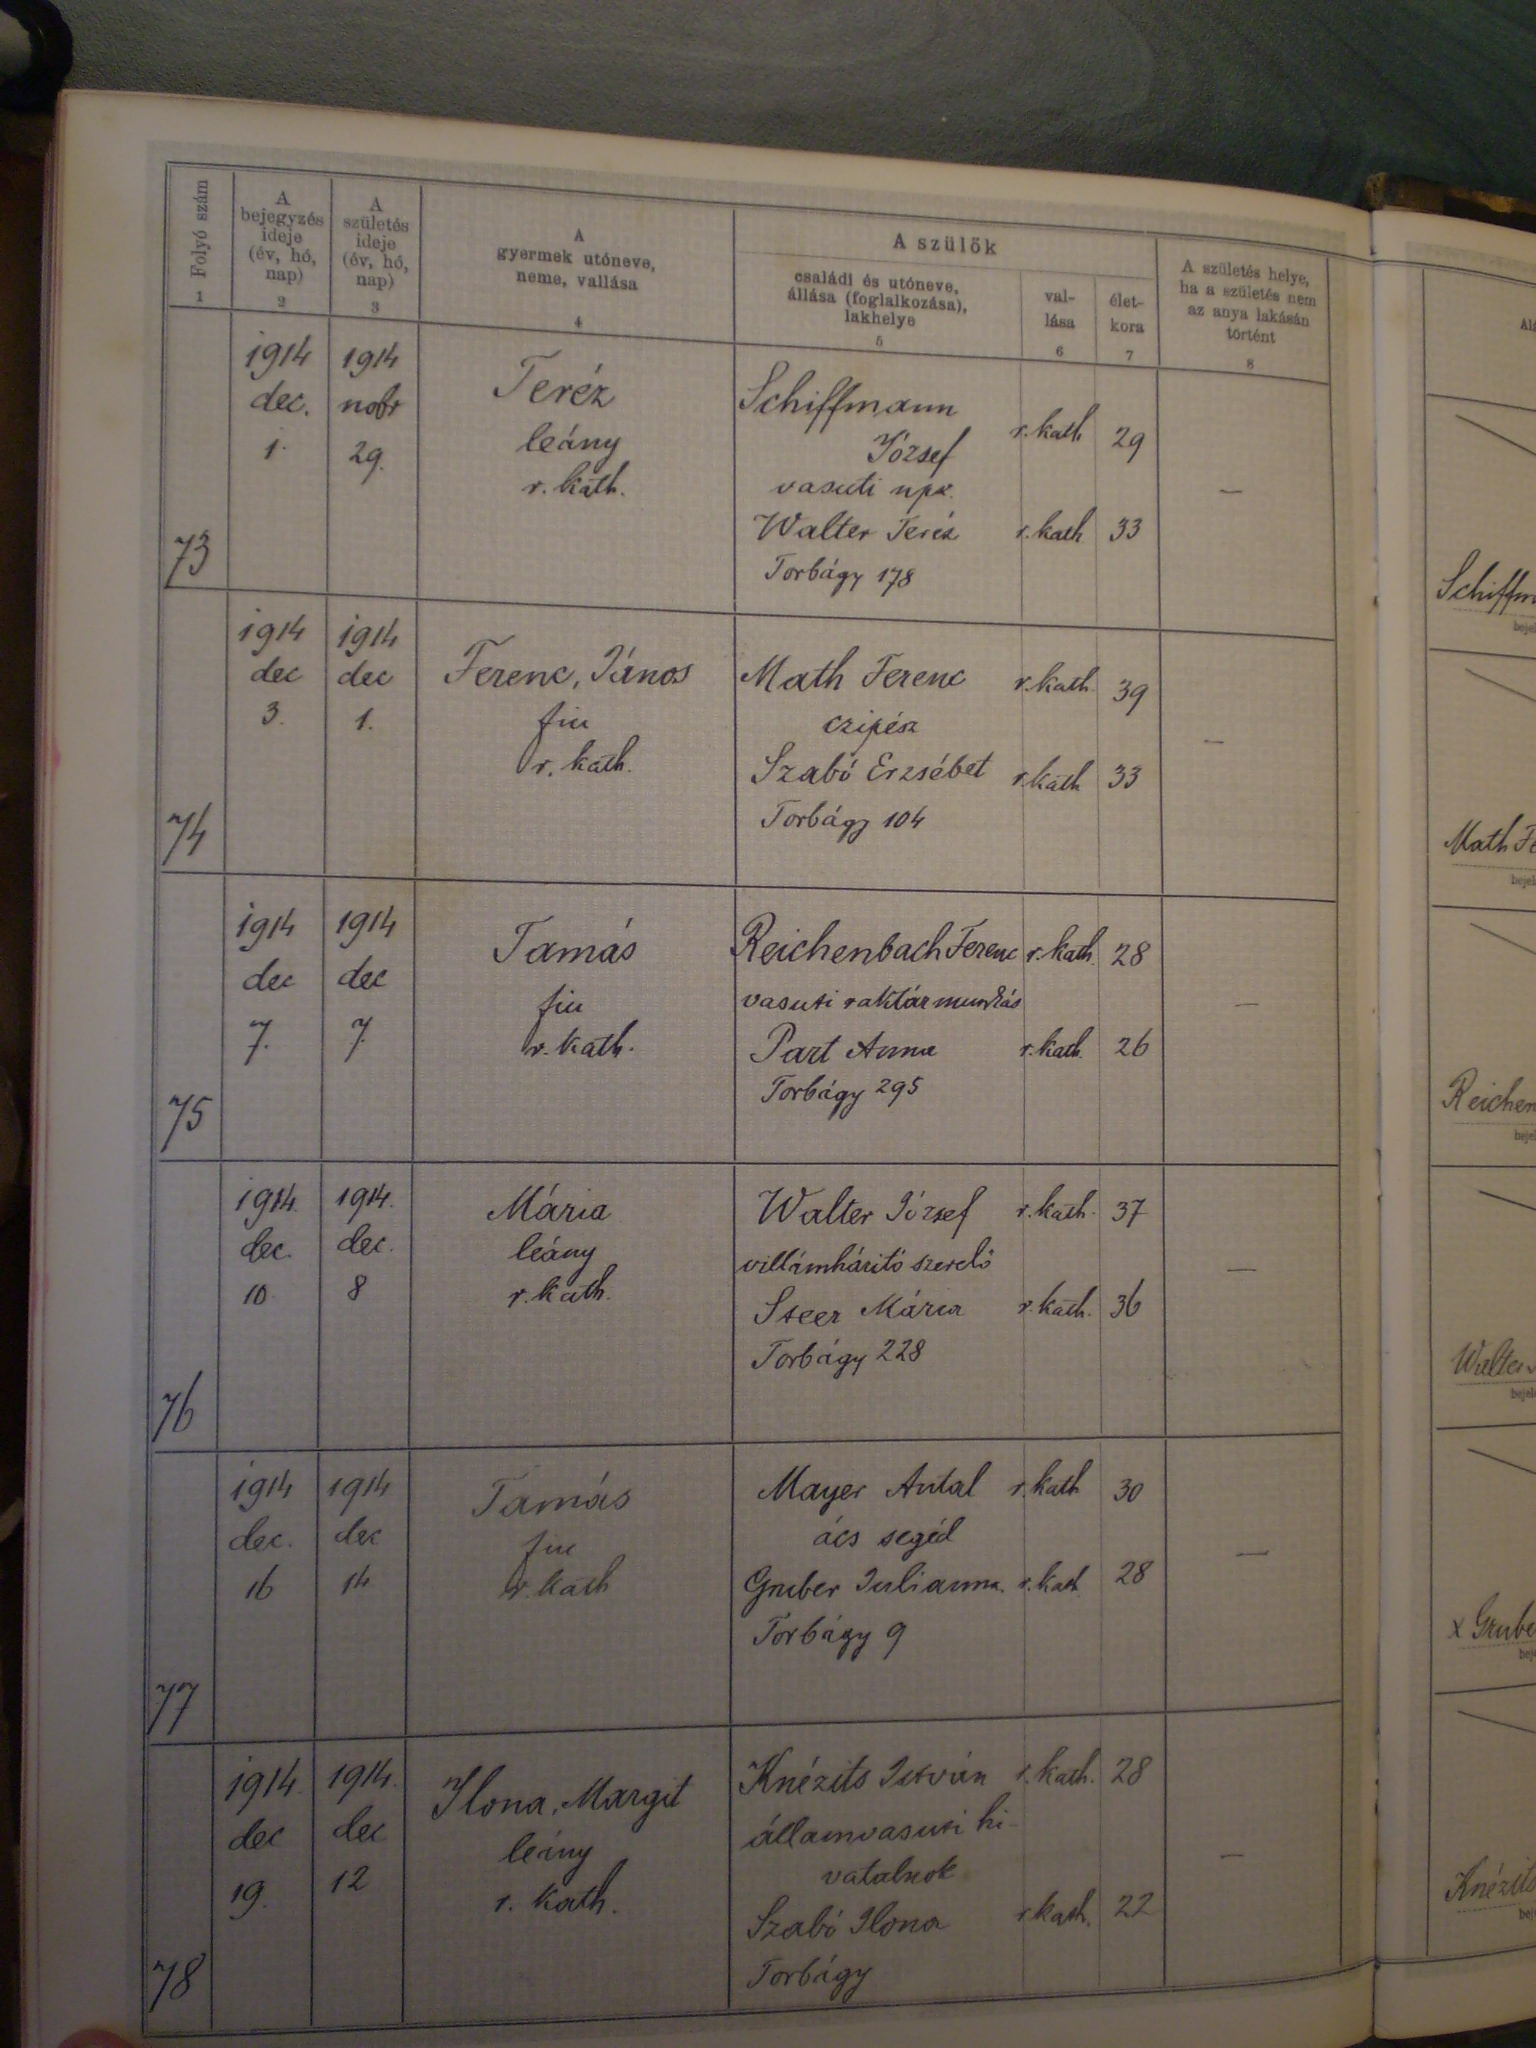 Folyó szám
1
A
bejegyzés
ideje
(év, hó,
nap)
2
A
születés
ideje
(év, hó,
nap)
3
A
gyermek utóneve,
neme, vallása
4
A szülők
családi és utóneve,
állása (foglalkozása),
lakhelye
5
val-
lása
6
élet-
kora
7
A születés helye,
ha a születés nem
az anya lakásán
történt
8
73
1914
dec.
1.
1914
nobr
29.
Teréz
leány
r. kath.
Schiffmann r. kath 29
József
vasuti npk.
Walter Teréz r. kath 33
Torbágy 178
—
Schiffm
74
1914
dec
3.
1914
dec
1.
Ferenc, János
fiu
r. kath.
Math Ferenc r. kath. 39
czipész
Szabó Erzsébet r. kath 33
Torbágy 104
—
Math Fe
75
1914
dec
7.
1914
dec
7.
Tamás
fiu
r. kath.
Reichenbach Ferenc r. kath. 28
vasuti raktármunkás
Part Anna r. kath. 26
Torbágy 295
—
Reichen
76
1914.
dec.
10.
1914.
dec.
8
Mária
leány
r. kath.
Walter József r. kath. 37
villámháritó szerelő
Steer Mária r. kath. 36
Torbágy 228
—
Walter
77
1914
dec.
16
1914
dec
14
Tamás
fiu
r. kath
Mayer Antal r. kath 30
ács segéd
Gruber Julianna. r. kath 28
Torbágy 9
—
x Grube
78
1914.
dec
19.
1914.
dec
12
Ilona, Margit
leány
r. kath.
Knézits István r. kath. 28
államvasuti hi-
vatalnok
Szabó Ilona r. kath. 22
Torbágy
—
Knézits